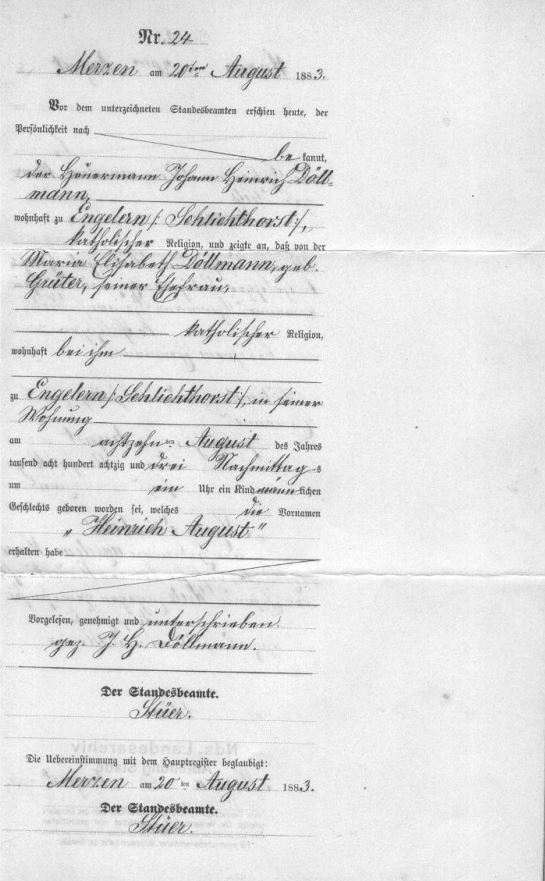 Nr. 24
Merzen am 20ten August 1883.
Vor dem unterzeichneten Standesbeamten erschien heute, der
Persönlichkeit nach
bekannt,
der Heuermann Johann Heinrich Döll-
mann,
wohnhaft zu Engelern /: Schlichthorst :/,
katholischer Religion, und zeigte an, daß von der
Maria Elisabeth Döllmann, geb.
Güter, seiner Ehefrau,
katholischer Religion,
wohnhaft bei ihm
zu Engelern /: Schlichthorst :/, in seiner
Wohnung
am achtzehnten August des Jahres
tausend acht hundert achtzig und drei Nachmittags
um ein Uhr ein Kind männlichen
Geschlechts geboren worden sei, welches die Vornamen
„Heinrich August"
erhalten habe
Vorgelesen, genehmigt und unterschrieben.
gez. J. H. Döllmann.
Der Standesbeamte.
Stüer.
Die Uebereinstimmung mit dem Hauptregister beglaubigt:
Merzen am 20ten August 1883.
Der Standesbeamte.
Stüer.